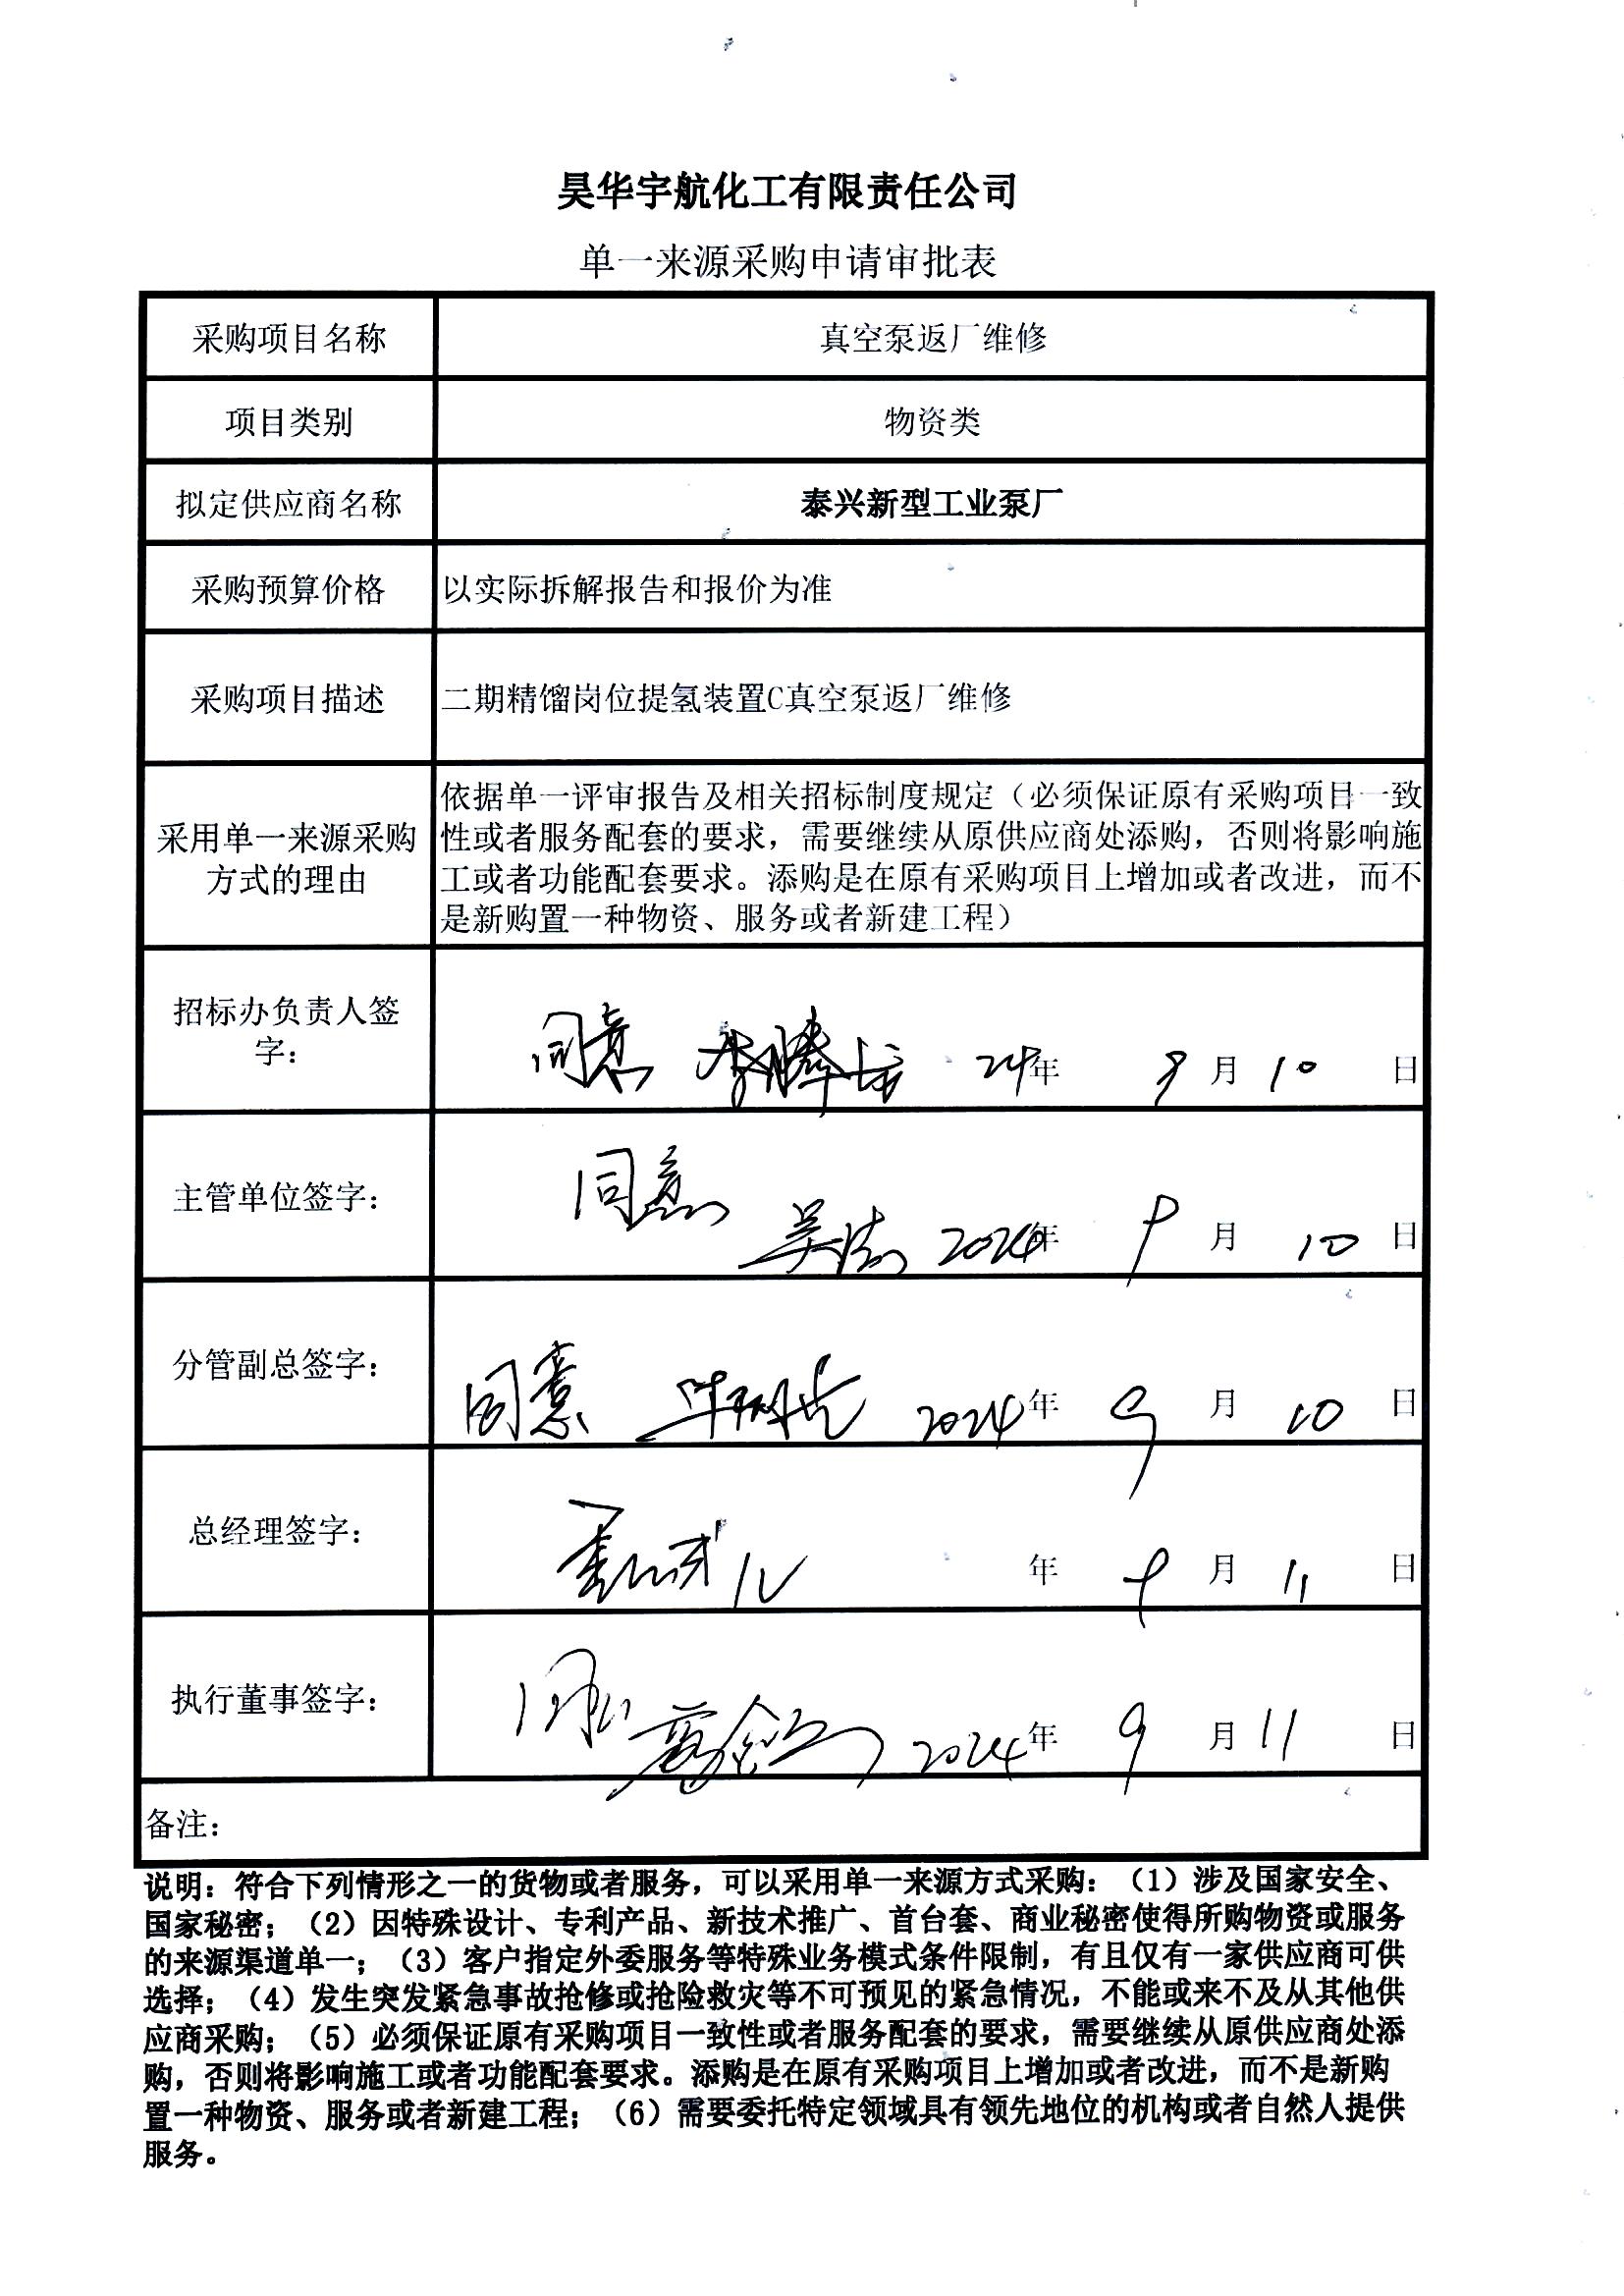 昊华宇航化工有限责任公司
单一来源采购申请审批表
采购项目名称
真空泵返厂维修
项目类别
物资类
拟定供应商名称
泰兴新型工业泵厂
采购预算价格
以实际拆解报告和报价为准
采购项目描述
二期精馏岗位提氢装置C真空泵返厂维修
采用单一来源采购
方式的理由
依据单一评审报告及相关招标制度规定（必须保证原有采购项目一致
性或者服务配套的要求，需要继续从原供应商处添购，否则将影响施
工或者功能配套要求。添购是在原有采购项目上增加或者改进，而不
是新购置一种物资、服务或者新建工程）
招标办负责人签
字：
同意 24年 月 10 日
主管单位签字：
同意
2024年 9 月 10 日
分管副总签字：
同意 2024年 9 月 10 日
总经理签字：
年 9 月 11 日
执行董事签字：
2024年 9 月 11 日
备注：
说明：符合下列情形之一的货物或者服务，可以采用单一来源方式采购：（1）涉及国家安全、
国家秘密；（2）因特殊设计、专利产品、新技术推广、首台套、商业秘密使得所购物资或服务
的来源渠道单一；（3）客户指定外委服务等特殊业务模式条件限制，有且仅有一家供应商可供
选择；（4）发生突发紧急事故抢修或抢险救灾等不可预见的紧急情况，不能或来不及从其他供
应商采购；（5）必须保证原有采购项目一致性或者服务配套的要求，需要继续从原供应商处添
购，否则将影响施工或者功能配套要求。添购是在原有采购项目上增加或者改进，而不是新购
置一种物资、服务或者新建工程；（6）需要委托特定领域具有领先地位的机构或者自然人提供
服务。